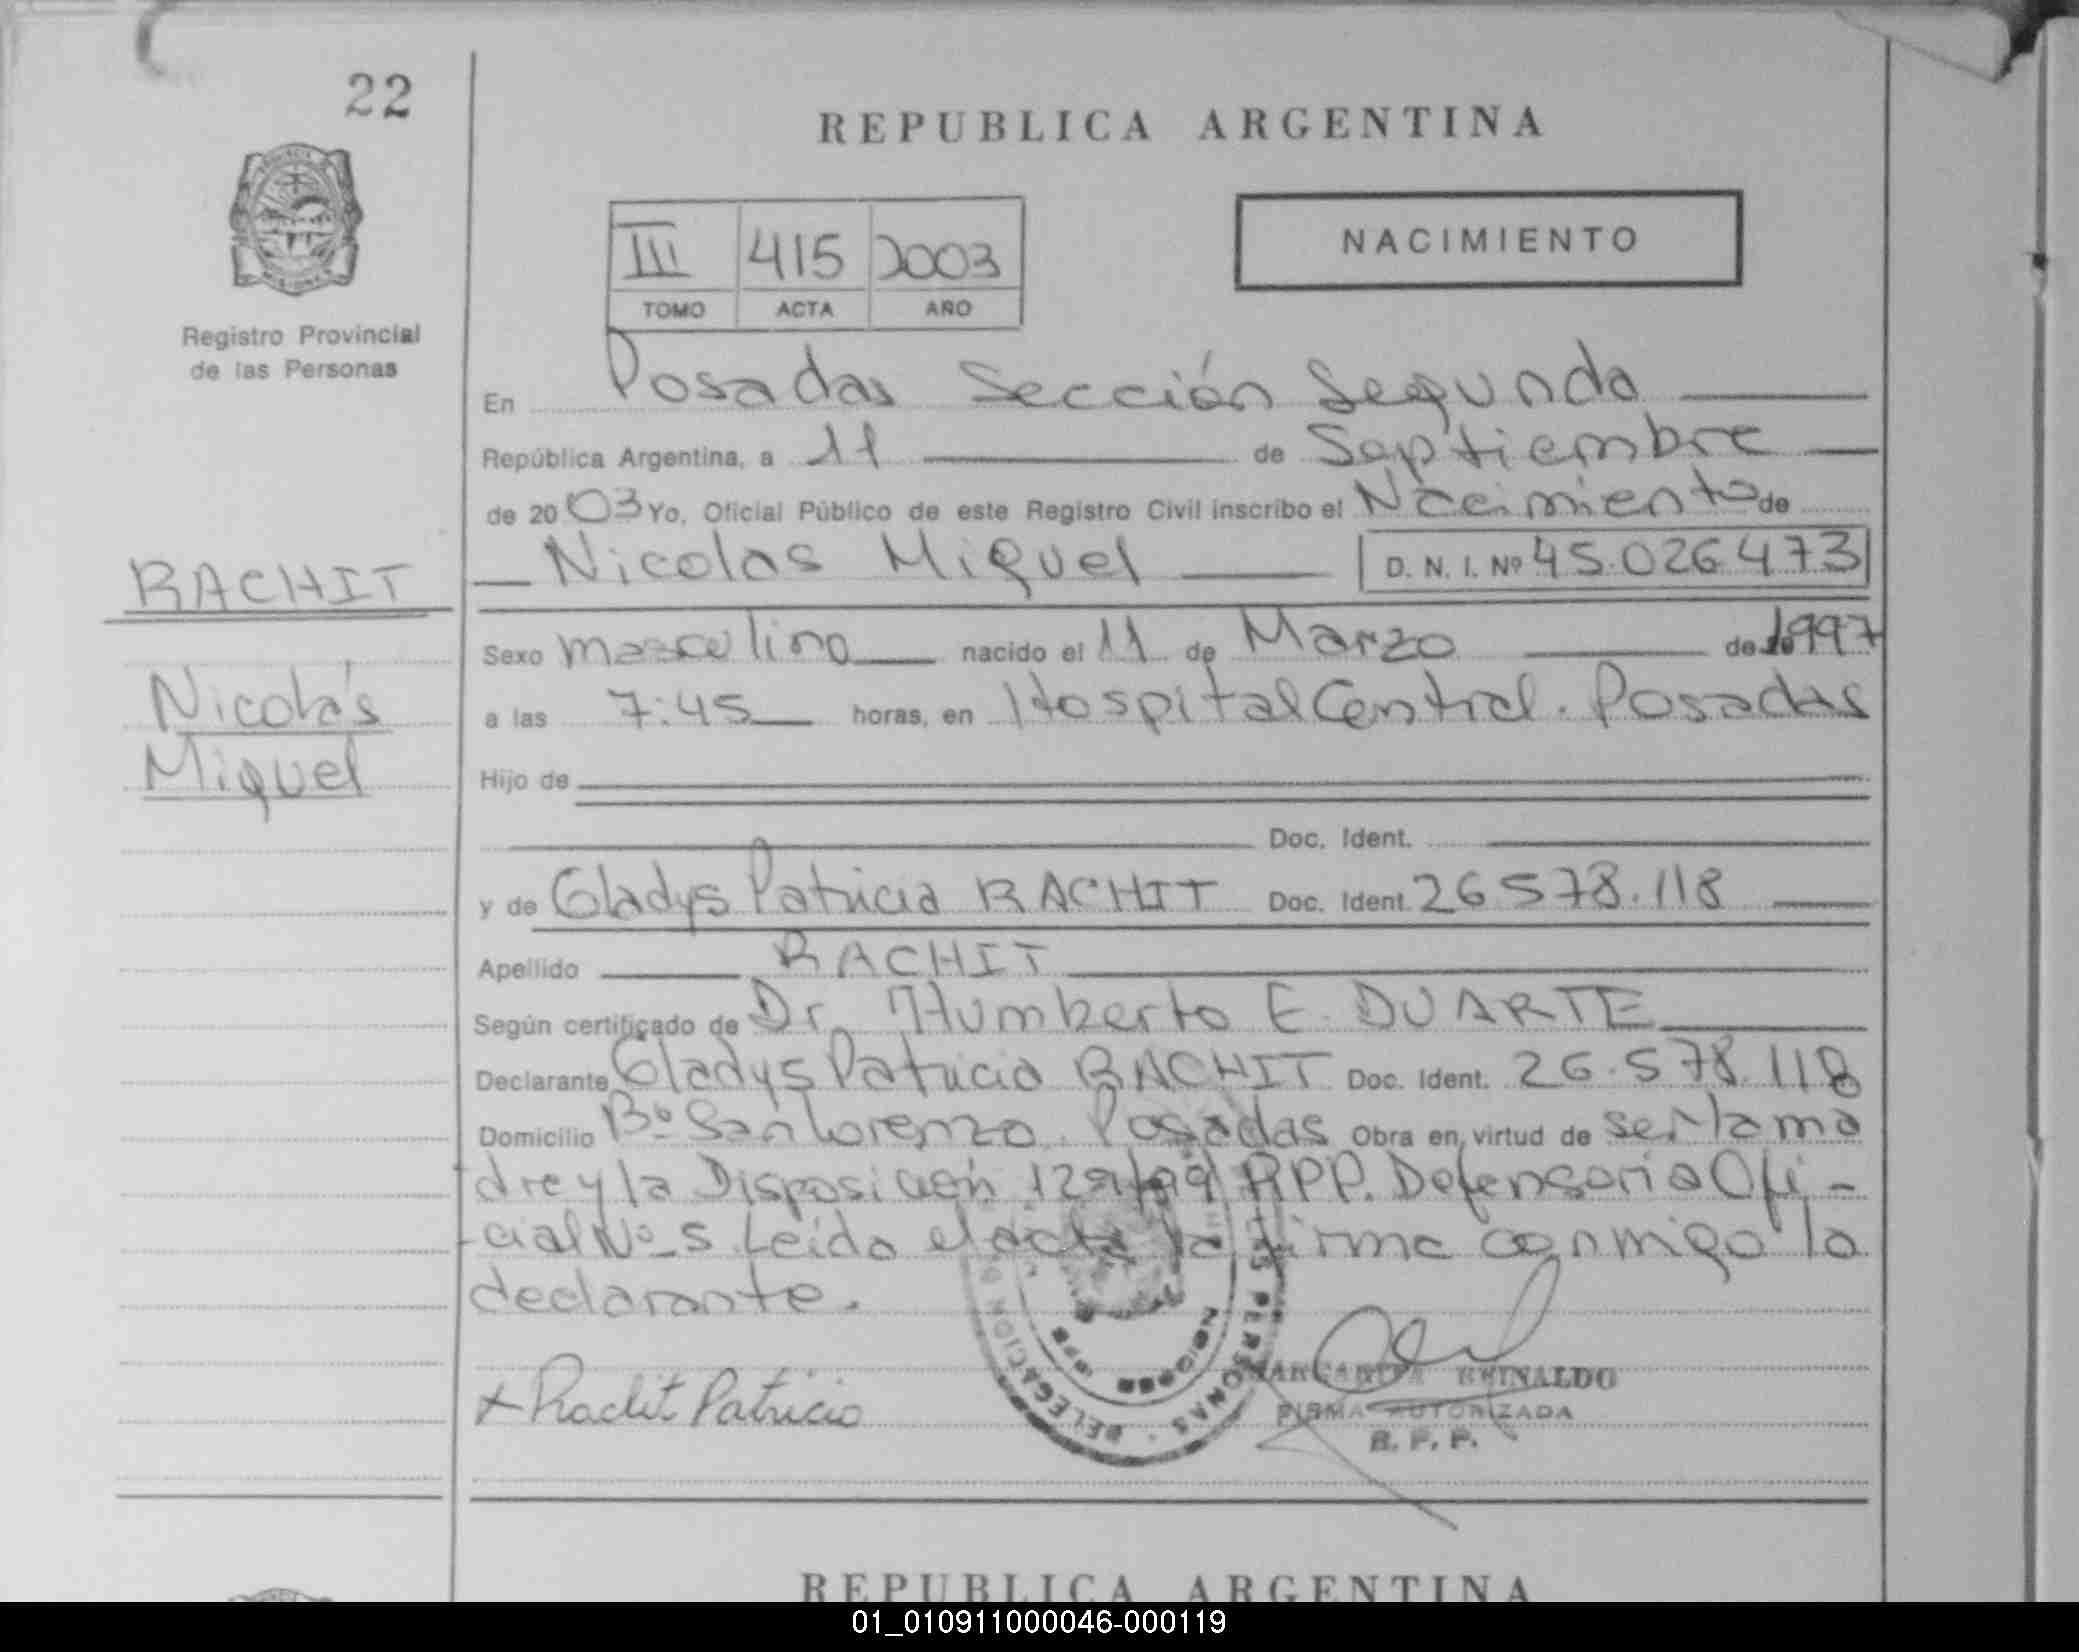 22
REPUBLICA ARGENTINA
III 415 2003
TOMO ACTA AÑO
NACIMIENTO
Registro Provincial
de las Personas
En Posadas Sección Segunda
República Argentina, a 11 de Septiembre
de 2003 Yo, Oficial Público de este Registro Civil inscribo el Nacimiento de
Nicolas Miguel D. N. I. Nº 45.026.473
RACHIT
Nicolás
Miguel
Sexo masculino nacido el 11 de Marzo de 1997
a las 7:45 horas, en Hospital Central. Posadas
Hijo de
Doc. Ident.
y de Gladys Patricia RACHIT Doc. Ident. 26.578.118
Apellido RACHIT
Según certificado de Dr. Humberto E. DUARTE
Declarante Gladys Patricia RACHIT Doc. Ident. 26.578.118
Domicilio Bº San Lorenzo. Posadas Obra en virtud de ser la ma
dre y la Disposición RPP. Defensoria Ofi-
cial Nº 5. Leída el acta la firma conmigo la
declarante.
Rachit Patricia
MARGARITA REINALDO
FIRMA AUTORIZADA
R. P. P.
DELEGACION PERSONAS
REPUBLICA ARGENTINA
01_010911000046-000119